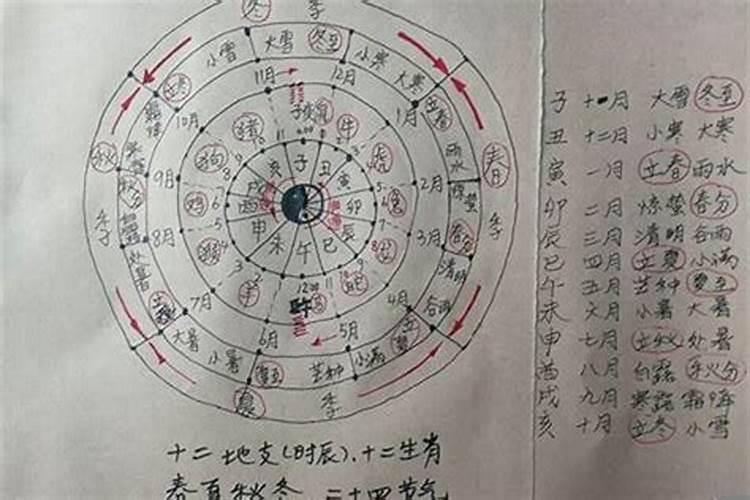 冬 季
小雪 大雪 冬至 小寒 大寒
立冬 立春
11月 12月
10月 1月
子 丑 寅 卯 辰 巳 午 未 申 酉 戌 亥
猪 牛 虎 兔
狗 鸡 羊
秋 季 春 季
9月 2月
秋分 雨水
惊蛰
8月 3月
处暑 春分 清明
谷雨
7月 4月
大暑 小暑 夏至 芒种 小满 立夏
6月 5月
夏 季
子 十一月 大雪 冬至
丑 十二月 小寒 大寒
寅 一月 立春 雨水
卯 二月 惊蛰 春分
辰 三月 清明 谷雨
巳 四月 立夏 小满
午 五月 芒种 夏至
未 六月 小暑 大暑
申 七月 立秋 处暑
酉 八月 白露 秋分
戌 九月 寒露 霜降
亥 十月 立冬 小雪
十二地支(时辰)、十二生肖
春夏秋冬 二十四节气